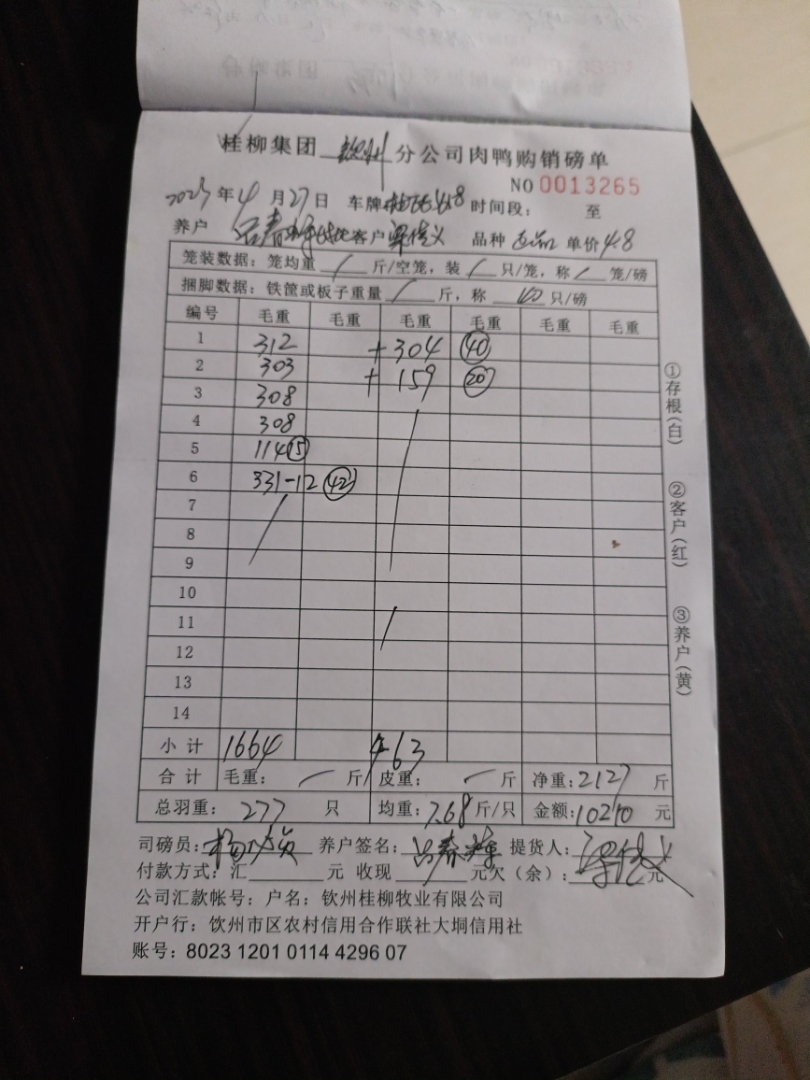 桂柳集团 钦州 分公司肉鸭购销磅单
NO 0013265
2023年4月27日 车牌 时间段: 至
养户 吕春 客户 梁信义 品种 正品 单价4.8
笼装数据:笼均重 / 斤/空笼,装 / 只/笼,称 / 笼/磅
捆脚数据:铁筐或板子重量 / 斤,称 40 只/磅
编号 毛重 毛重 毛重 毛重 毛重 毛重
1 312 +304 40
2 303 +159 20
3 308
4 308
5 114 15
6 331-12 42
7
8
9
10
11
12
13
14
小计 1664 463
合计 毛重: 斤 皮重: 斤 净重:2127 斤
总羽重: 277 只 均重:7.68斤/只 金额:10210 元
司磅员: 杨 养户签名: 吕春 提货人: 梁信义
付款方式:汇 元 收现 元欠(余): 元
公司汇款帐号:户名:钦州桂柳牧业有限公司
开户行:钦州市区农村信用合作联社大垌信用社
账号:8023 1201 0114 4296 07
①存根(白)
②客户(红)
③养户(黄)